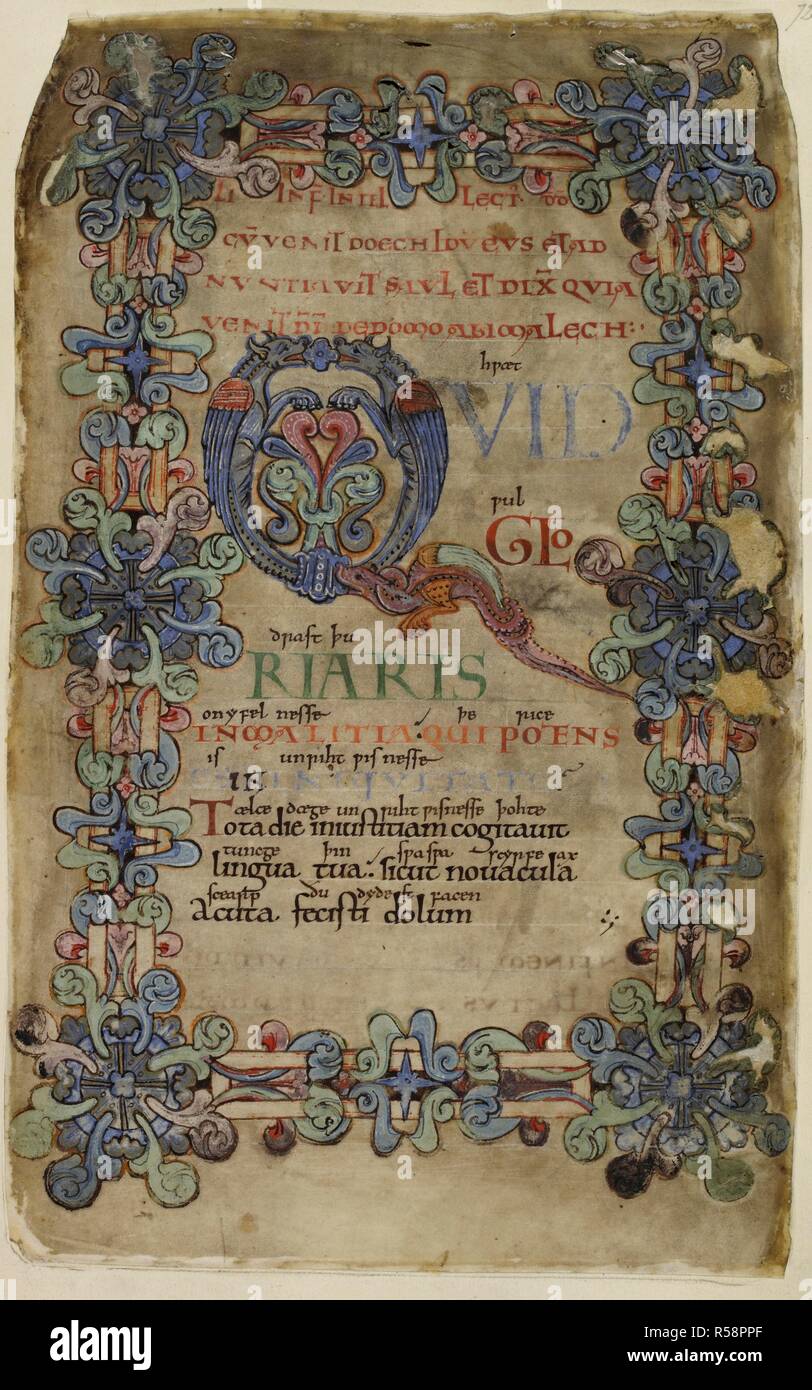 LI IN FINIII LECT DD
CŪ VENIT DOECH IDUEUS ET AD
NUNTIAUIT SAUL ET DIX̄ QUIA
UENIT DD̄ DE DOMO ABIMALECH:
hƿæt
QVID
ƿul
GLO
drast þu
RIARIS
on yfel nesse þe rice
IN MALITIA QUI POTENS
is unriht ƿisnesse
IN
ælce dæge un riht ƿisnesse þohte
Tota die iniustitiam cogitauit
tunge þin sƿa sƿa scyrfe ax
lingua tua: sicut nouacula
scearp du dydest facen
acuta fecisti dolum
alamy
Image ID: R58PPF
www.alamy.com